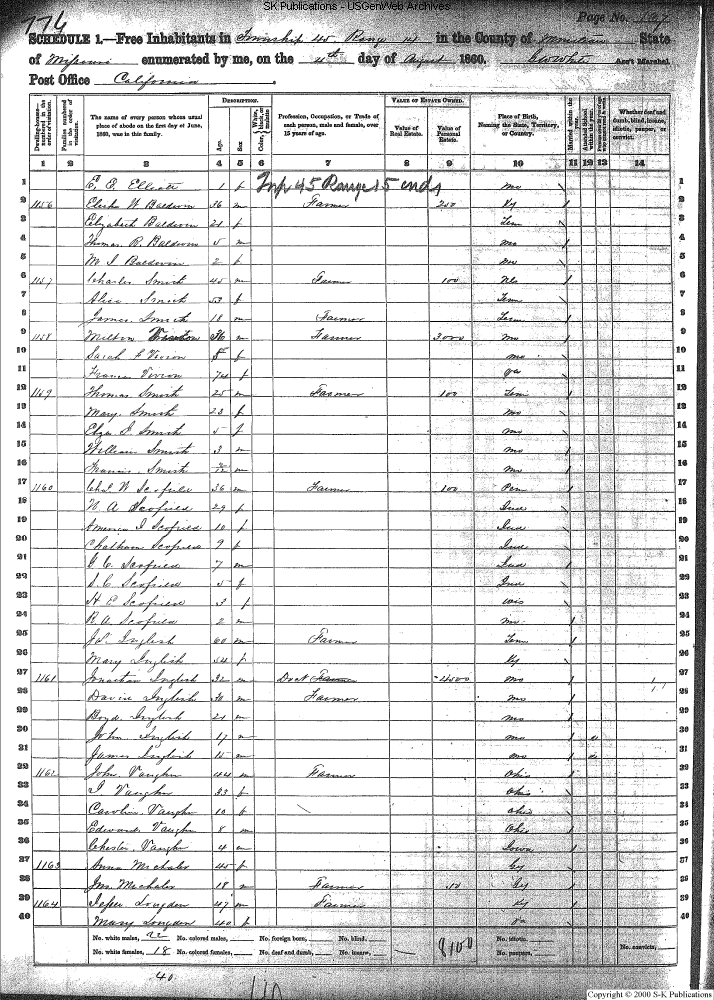 SK Publications - USGenWeb Archives
774
Page No.
SCHEDULE 1.—Free Inhabitants in Township 45 Range 14 in the County of Moniteau State
of Missouri enumerated by me, on the 4th day of August 1860. Ass't Marshal.
Post Office California
DESCRIPTION. VALUE OF ESTATE OWNED.
Dwelling-houses— numbered in the order of visitation.
Families numbered in the order of visitation.
The name of every person whose usual place of abode on the first day of June, 1860, was in this family.
Age. Sex White, black, or mulatto. Color,
Profession, Occupation, or Trade of each person, male and female, over 15 years of age.
Value of Real Estate. Value of Personal Estate.
Place of Birth, Naming the State, Territory, or Country.
Married within the year. Attended School within the year.
Whether deaf and dumb, blind, insane, idiotic, pauper, or convict.
1 2 3 4 5 6 7 8 9 10 11 12 13 14
1 E. E. Elliott 1 f Twp 45 Range 15 ends Mo 1
2 1156 Elisha W Baldwin 36 m Farmer 250 Ky 2
3 Elizabeth Baldwin 21 f Tenn 3
4 Thomas R. Baldwin 5 m Mo 4
5 M J Baldwin 2 f Mo 5
6 1157 Charles Smith 45 m Farmer 100 6
7 Alice Smith 53 f Tenn 7
8 James Smith 18 m Farmer Tenn 8
9 1158 Milton 36 m Farmer 3000 Mo 9
10 Sarah F Vivion f Mo 10
11 Frances Vivion 74 f 11
12 1159 Thomas Smith 25 m Farmer 100 Tenn 12
13 Mary Smith 23 f Mo 13
14 Eliza J Smith 5 f Mo 14
15 William Smith 3 m Mo 15
16 Francis Smith m Mo 16
17 1160 Chas W Scofield 36 m Farmer 100 Pen 17
18 A Scofield 29 f Ind 18
19 America J Scofield 10 f Ind 19
20 Chatham Scofield 9 f Ind 20
21 C. Scofield 7 m Ind 21
22 S. C. Scofield 5 f Ind 22
23 H E Scofield 3 f Wis 23
24 R A Scofield 2 m Mo 24
25 J. S. Inglish 60 m Farmer Tenn 25
26 Mary Inglish 54 f Ky 26
27 1161 Jonathan Inglish 32 m Doct Farmer 4500 Mo 27
28 David Inglish 30 m Farmer Mo 28
29 Boyd Inglish 21 m Mo 29
30 John Inglish 17 m Mo 30
31 James Inglish 15 m Mo 31
32 1162 John Vaughn 44 m Farmer Ohio 32
33 J Vaughn 33 f Ohio 33
34 Caroline Vaughn 10 f Ohio 34
35 Edward Vaughn 8 m Ohio 35
36 Chester Vaughn 4 m Iowa 36
37 1163 Anna Michaler 45 f Ky 37
38 Jno. Michaler 18 m Farmer 10 Ky 38
39 1164 Longden 47 m Farmer Ky 39
40 Mary Longden 40 f Va 40
No. white males, 22 No. colored males, No. foreign born, No. blind, 8100 No. idiotic,
No. white females, 18 No. colored females, No. deaf and dumb, No. insane, No. paupers, No. convicts,
40
110
Copyright © 2000 S-K Publications